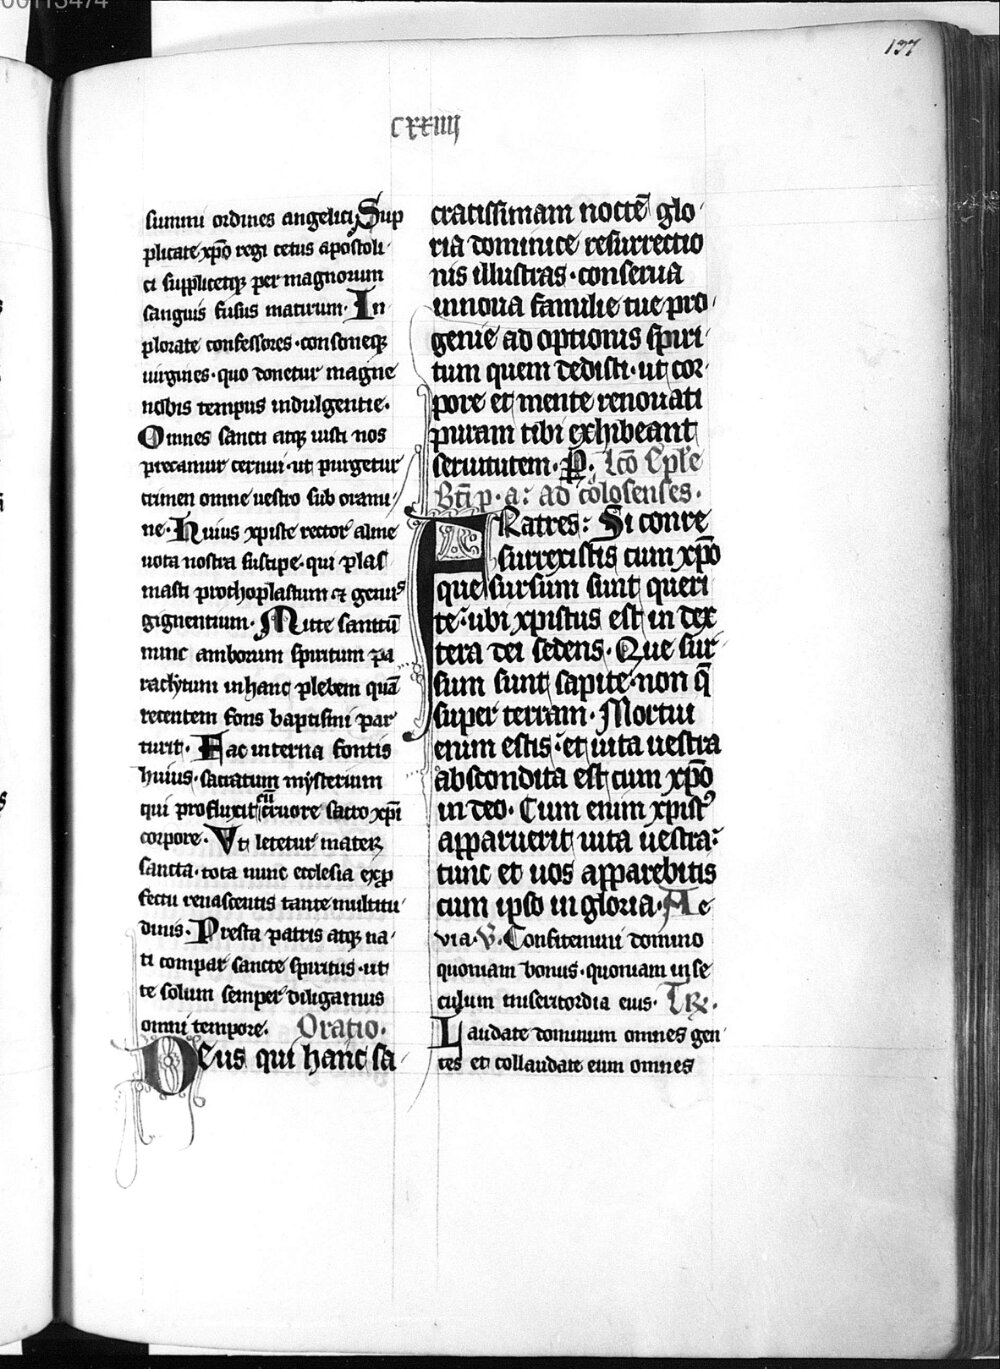 00113474
137
cxxiiii
summi ordines angelici. Sup
plicate xp̄o regi cetus apostoli
ci supplicetqꝫ per magnorum
sanguis fusus martirum. In
plorate confessores · consoneqꝫ
uirgines · quo donetur magne
nobis tempus indulgentie.
Omnes sancti atqꝫ iusti nos
precamur cernui · ut purgetur
crimen omne uestro sub oranī
ne. huius xpiste rector alme
uota nostra suscipe · qui plas
masti prothoplastum ⁊ genus
gignentium. Mitte sanctū
nunc amborum spiritum pa
raclytum in hanc plebem quā
recentem fons baptismi par
turit. Fac interna fontis
huius · sacratum mysterium
qui profluxit cū cruore sacro xp̄i
corpore. Vt letetur mater
sancta · tota nunc ecclesia ex ꝓ
fectu renascentis tante multitu
dinis. Presta patris atqꝫ na
ti compar sancte spiritus · ut
te solum semper diligamus
omni tempore. Oratio.
Deus qui hanc sa
cratissimam noctē glo
ria dominice resurrectio
nis illustras · conserua
innoua familie tue pro
genie adoptionis spiri
tum quem dedisti · ut cor
pore et mente renouati
puram tibi exhibeant
seruitutem. P. Lc̄o Ep̄le
Bt̄i p. a: ad colosenses.
FRatres: Si conre
surrexistis cum xp̄o
que sursum sunt queri
te: ubi xpistus est in dex
tera dei sedens. Que sur
sum sunt sapite · non q̄
super terram. Mortui
enim estis: et uita uestra
abscondita est cum xp̄o
in deo. Cum enim xpistꝰ
apparuerit uita uestra:
tunc et uos apparebitis
cum ipso in gloria. Ae
via. V. Confitemini domino
quoniam bonus · quoniam in se
culum misericordia eius. TRc.
Laudate dominum omnes gen
tes et collaudate eum omnes